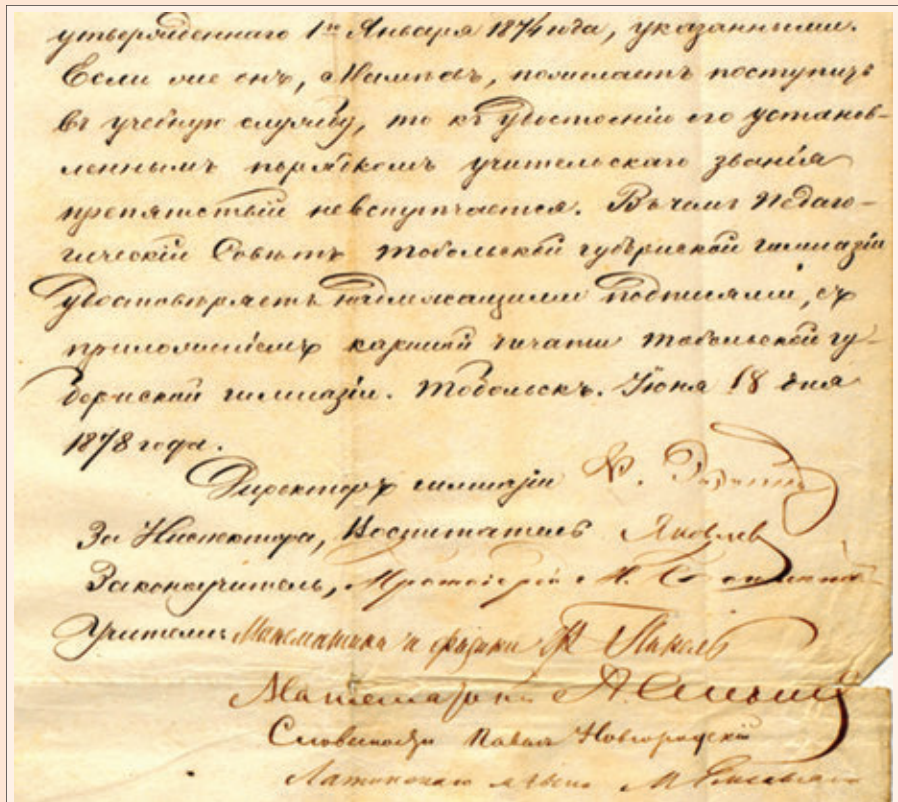 утвержденнаго 1го Января 1874 года, указанными.
Если же онъ, Мамѣевъ, пожелаетъ поступить
въ учебную службу, то къ удостоенію его установ-
леннымъ порядкомъ учительскаго званія
препятствій невстрѣчается. Въ чемъ Педаго-
гическій Совѣтъ Тобольской губернской гимназіи
удостовѣряетъ надлежащими подписями, съ
приложеніемъ казенной печати Тобольской гу-
бернской гимназіи. Тобольскъ. Іюня 18 дня
1878 года.
Директоръ гимназіи
За Инспектора, Воспитатель Яковлев
Законоучитель, Протоіерей
Учители: Математики и физики
Математики
Словесности Павелъ Новгородскій
Латинскаго языка М.